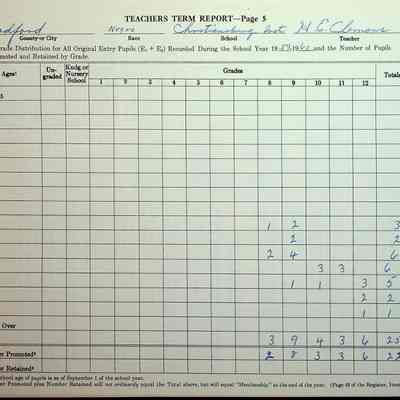 TEACHERS TERM REPORT—Page 5
adford Negro Christiansburg Inst H C Clemons
County or City Race School Teacher
rade Distribution for All Original Entry Pupils (E₁ + E₂) Recorded During the School Year 19 59, 19 60 and the Number of Pupils
omoted and Retained by Grade.
Ages¹ Un-graded Kndg or Nursery School Grades Totals
1 2 3 4 5 6 7 8 9 10 11 12
5
1 2 3
2 2
2 4 6
3 3 6
1 1 3 5
2 2
1 1
Over
3 9 4 3 6 25
er Promoted² 2 8 3 3 6 22
er Retained²
chool age of pupils is as of September 1 of the school year.
er Promoted plus Number Retained will not ordinarily equal the Total above, but will equal "Membership" at the end of the year. (Page 48 of the Register, Item